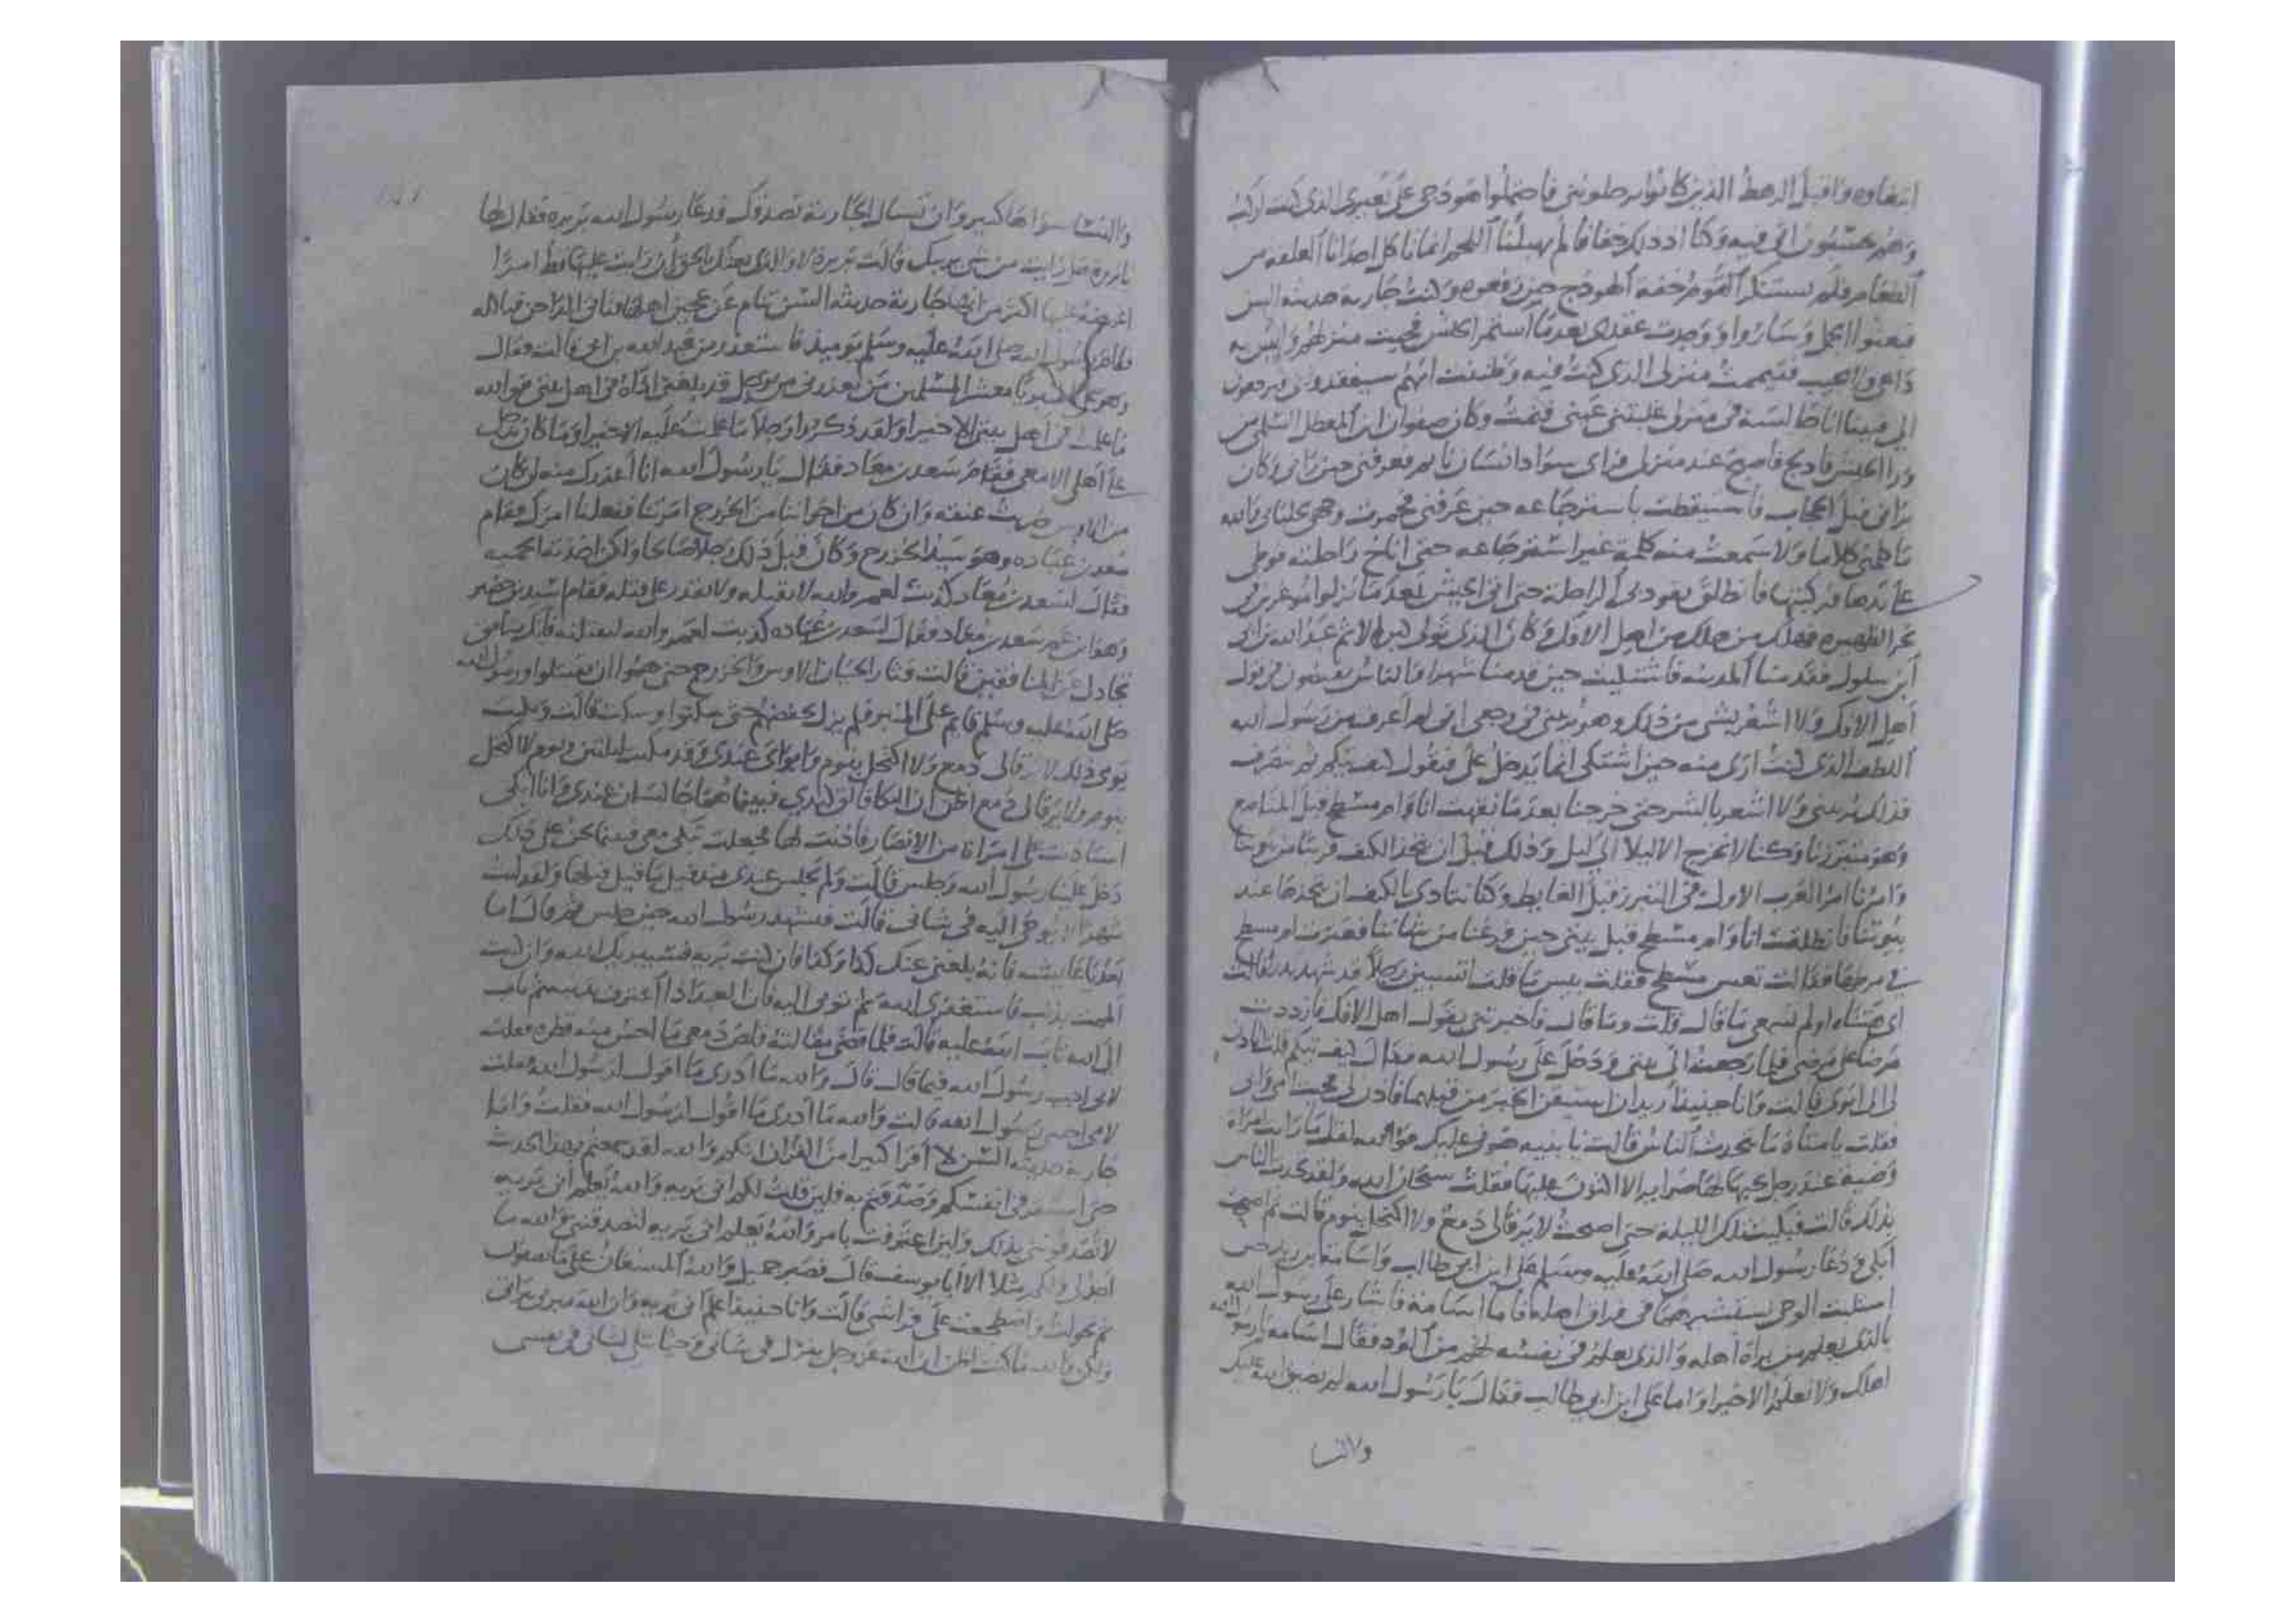 ابتغاوه واقبل الرهط الذين كانوا يرحلونني فاحتملوا هودجي على بعيري الذي كنت اركب
وهم يحسبون اني فيه وكنا اذ ذلك خفافا لم يهبلنا اللحم انما ناكل احدانا العلقه من
الطعام فلم يستنكر القوم خفة الهودج حين رفعوه وكنت جارية حديثه السن
فبعثوا الجمل وساروا ووجدت عقدي بعدما استمر الجيش فجيت منزلهم وليس به
داعي ولا مجيب فتيممت منزلي الذي كنت فيه وظننت انهم سيفقدوني فيرجعون
الي فبينا انا جالسة في منزلي غلبتني عيني فنمت وكان صفوان ابن المعطل السلمي من
ورا الجيش فادلج فاصبح عند منزلي فراى سواد انسان نايم فعرفني حين راني وكان
يراني قبل الحجاب فاستيقظت باسترجاعه حين عرفني فخمرت وجهي بجلبابي والله
ما كلمني كلاما ولا سمعت منه كلمة غير استرجاعه حتى اناخ راحلته فوطي
على يدها فركبتها فانطلق يقود بي الراحلة حتى اتى الجيش بعد ما نزلوا موغرين في
نحر الظهيره فهلك من هلك من اهل الافك وكان الذي تولى كبر الاثم عبد الله بن ابي
ابن سلول فقدمنا المدينه فاشتكيت حين قدمنا شهرا والناس يفيضون في قول
اهل الافك ولا اشعر بشي من ذلك وهو يريبني في وجعي اني لم اعرف من رسول الله
اللطف الذي كنت ارى منه حين اشتكي انما يدخل علي فيقول كيف تيكم ثم ينصرف
فذلك يريبني ولا اشعر بالشر حتى خرجنا بعد ما نقهت انا وام مسطح قبل المناصع
وهو متبرزنا وكنا لا نخرج الا ليلا الى ليل وذلك قبل ان نتخذ الكنف قريبا من بيوتنا
وامرنا امر العرب الاول في التبرز قبل الغايط وكنا نتاذى بالكنف ان نتخذها عند
بيوتنا فانطلقت انا وام مسطح قبل بيتي حين فرغنا من شاننا فعثرت ام مسطح
في مرطها فقالت تعس مسطح فقلت بيس ما قلت اتسبين رجلا قد شهد بدرا فقالت
اي هنتاه اولم تسمعي ما قال قلت وما قال فاخبرتني بقول اهل الافك فازددت
مرضا على مرضي فلما رجعت الى بيتي ودخل علي رسول الله فقال كيف تيكم فقلت اتاذن
لي الى ابوي قالت وانا حينيذ اريد ان استيقن الخبر من قبلهما فاذن لي فجيت امي وابي
فقلت يا امتاه ما يتحدث الناس قالت يا بنيه هوني عليك فوالله لقل ما رايت امراة
وضية عند رجل يحبها لها ضراير الا اكثرن عليها فقلت سبحان الله ولقد تحدث الناس
بذلك قالت فبكيت تلك الليلة حتى اصبحت لا يرقا لي دمع ولا اكتحل بنوم قالت ثم اصبحت
ابكي ودعا رسول الله صلى الله عليه وسلم علي ابن ابي طالب واسامة ابن زيد حين
استلبث الوحي يستشيرهما في فراق اهله فاما اسامة فاشار على رسول الله
بالذي يعلم من براة اهله والذي يعلم في نفسه لهم من الود فقال اسامة يا رسول الله
اهلك ولا نعلم الا خيرا واما علي ابن ابي طالب فقال يا رسول الله لم يضيق الله عليك
والنسا
والنسا سواها كبير وان تسال الجارية تصدقك فدعا رسول الله بريره فقال لها
يا بريرة هل رايت من شي يريبك قالت بريرة لا والذي بعثك بالحق ان رايت عليها قط امرا
اغمصه عليها اكثر من انها جارية حديثه السن تنام عن عجين اهلها فتاتي الداجن فتاكله
فقام رسول الله صلى الله عليه وسلم يوميذ فاستعذر من عبد الله بن ابي قالت فقال
وهو على المنبر يا معشر المسلمين من يعذرني من رجل قد بلغني اذاه في اهل بيتي فوالله
ما علمت في اهل بيتي الا خيرا ولقد ذكروا رجلا ما علمت عليه الا خيرا وما كان يدخل
على اهلي الا معي فقام سعد بن معاد فقال يا رسول الله انا اعذرك منه ان كان
من الاوس ضربت عنقه وان كان من اخواننا من الخزرج امرتنا ففعلنا امرك فقام
سعد بن عباده وهو سيد الخزرج وكان قبل ذلك رجلا صالحا ولكن اخذته الحميه
فقال لسعد بن معاد كذبت لعمر والله لا تقتله ولا تقدر على قتله فقام اسيد بن حضير
وهو ابن عم سعد بن معاد فقال لسعد بن عباده كذبت لعمر والله لنقتلنه فانك منافق
تجادل عن المنافقين قالت وثار الحيان الاوس والخزرج حتى هموا ان يقتتلوا ورسول الله
صلى الله عليه وسلم قايم على المنبر فلم يزل يخفضهم حتى سكتوا وسكت قالت وبكيت
يومي ذلك لا يرقا لي دمع ولا اكتحل بنوم وابواي عندي وقد مكثت ليلتين ويوم لا اكتحل
بنوم ولا يرقا لي دمع اظن ان البكا فالق كبدي فبينما هما جالسان عندي وانا ابكي
استاذنت علي امراة من الانصار فاذنت لها فجعلت تبكي معي فبينما نحن على ذلك
دخل علينا رسول الله وجلس قالت ولم يجلس عندي منذ قيل ما قيل قبلها ولقد لبث
شهرا لا يوحى اليه في شاني قالت فتشهد رسول الله حين جلس ثم قال اما
بعد يا عايشه فانه بلغني عنك كذا وكذا فان كنت بريه فسيبريك الله وان كنت
الممت بذنب فاستغفري الله ثم توبي اليه فان العبد اذا اعترف بذنبه ثم تاب
الى الله تاب الله عليه قالت فلما قضى مقالته قلص دمعي ما احس منه قطره فقلت
لابي اجيب رسول الله فيما قال قال والله ما ادري ما اقول لرسول الله فقلت
لامي اجيبي رسول الله قالت والله ما ادري ما اقول لرسول الله فقلت وانا
جارية حديثه السن لا اقرا كثيرا من القران انكم والله لقد سمعتم بهذا الحديث
حتى استقر في انفسكم وصدقتم به فلين قلت لكم اني بريه والله يعلم اني بريه
لا تصدقونني بذلك ولين اعترفت بامر والله يعلم اني بريه لتصدقنني والله ما
اجد لي ولكم مثلا الا ابا يوسف قال فصبر جميل والله المستعان على ما تصفون
ثم تحولت واضطجعت على فراشي قالت وانا حينيذ اعلم اني بريه وان الله مبري براتي
ولكن والله ما كنت اظن ان الله عز وجل ينزل في شاني وحيا يتلى لشاني في نفسي